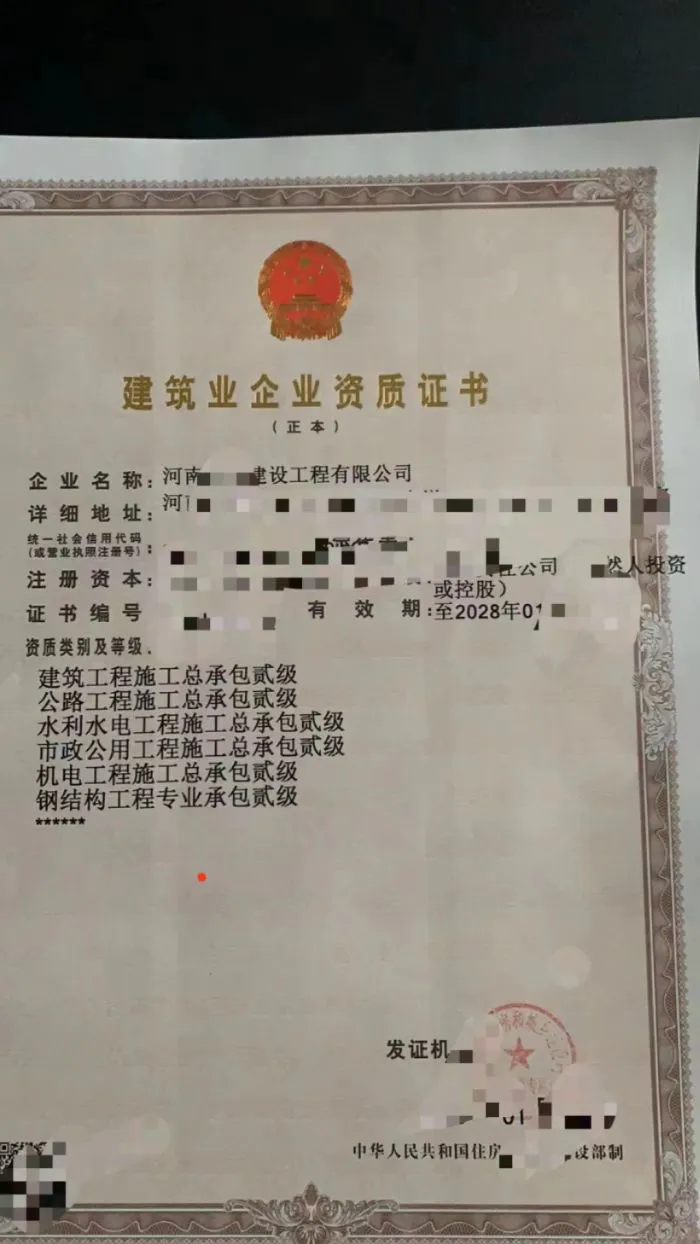 建筑业企业资质证书
(正本)
企业名称:河南 建设工程有限公司
详细地址:河南
统一社会信用代码
(或营业执照注册号):
公司 然人投资
注册资本:
或控股)
证书编号 有效期:至2028年01
资质类别及等级
建筑工程施工总承包贰级
公路工程施工总承包贰级
水利水电工程施工总承包贰级
市政公用工程施工总承包贰级
机电工程施工总承包贰级
钢结构工程专业承包贰级
******
发证机
01
中华人民共和国住房 设部制